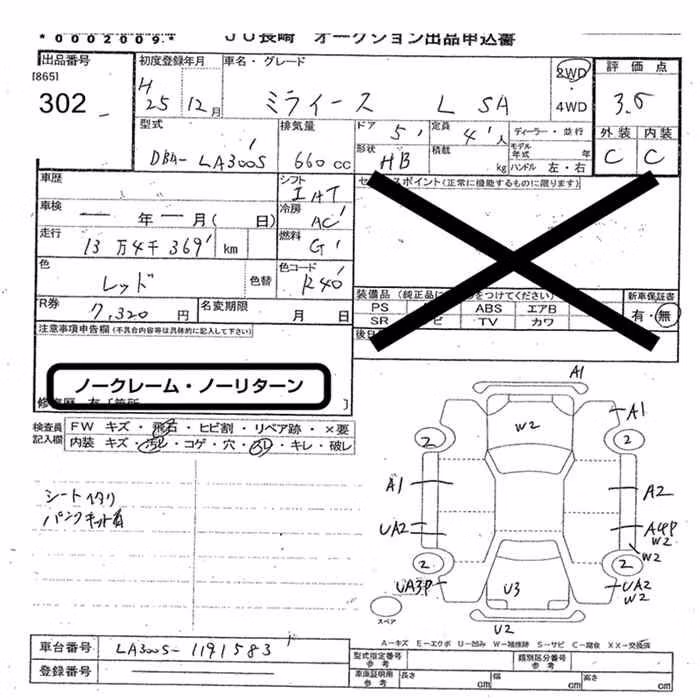 *0002009.*
JU長崎 オークション出品申込書
出品番号 [865] 302
初度登録年月 H 25 12月
車名・グレード ミライース L SA
2WD ・ 4WD
評価点 3.5
外装 C 内装 C
型式 DBA- LA300S
排気量 660 CC
ドア 5
定員 4 人
形状 HB
積載 kg
ディーラー・並行
モデル年式 年
ハンドル 左・右
車歴
シフト IAT
車検 ー 年 ー 月( 日)
冷房 AC
走行 13万4千369 km
燃料 G
色 レッド 色替
色コード R40
R券 7,320 円
名変期限 月 日
スポイント(正常に機能するものに限ります)
装備品(純正品に をつけてください)
PS ABS エアB
SR ビ TV カワ
新車保証書 有・無
後日
注意事項申告欄(不具合内容等は具体的に記入して下さい)
ノークレーム・ノーリターン
検査員記入欄
FW キズ・飛石・ヒビ割・リペア跡・×要
内装 キズ・汚れ・コゲ・穴・スレ・キレ・破レ
シートヘタリ
パンクキット有
A1
W2
A1
2 2
A1 A2
UA2 W2
W2
2 2
UA3P U3 UA2
W2
U2
スペア
A-キズ E-エクボ U-凹み W-補修跡 S-サビ C-腐食 XX-交換済
車台番号 LA300S-1191583
登録番号
型式指定番号 参考
類別区分番号 参考
車庫証明用 参考 長さ cm 幅 cm 高さ cm